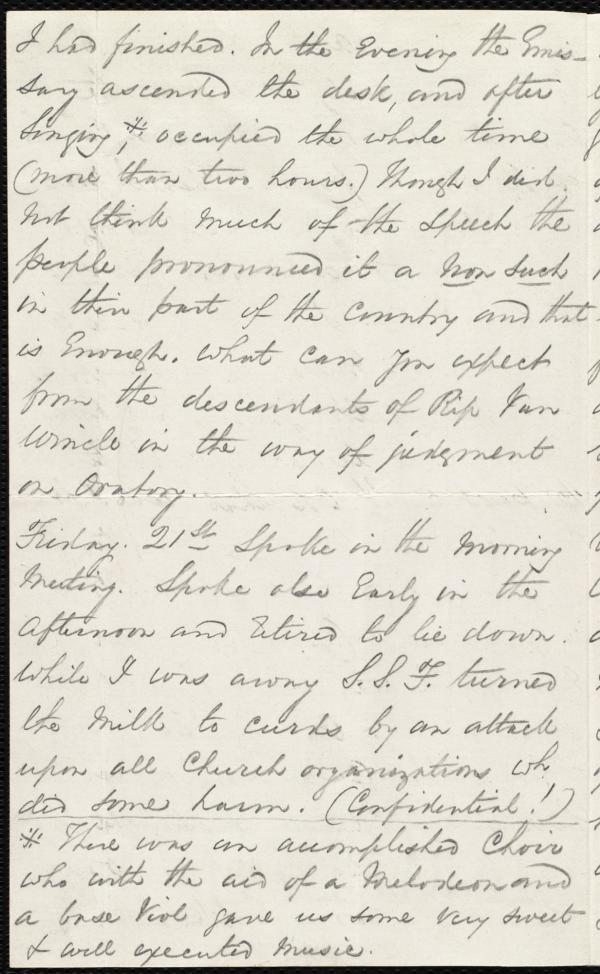 I had finished. In the Evening the Emis-
sary ascended the desk, and after
Singing,* occupied the whole time
(more than two hours.) Though I did
not think much of the Speech the
people pronounced it a Non Such
in their part of the country and that
is Enough. What can you expect
from the descendants of Rip Van
Wincle in the way of judgment
on Oratory.
Friday. 21st Spoke in the Morning
Meeting. Spoke also Early in the
Afternoon and retired to lie down.
While I was away S. S. F. turned
the Milk to curds by an attack
upon all Church organizations wh
did some harm. (Confidential!)
* There was an accomplished Choir
who with the aid of a Melodeon and
a base Viol gave us some very sweet
& well executed Music.